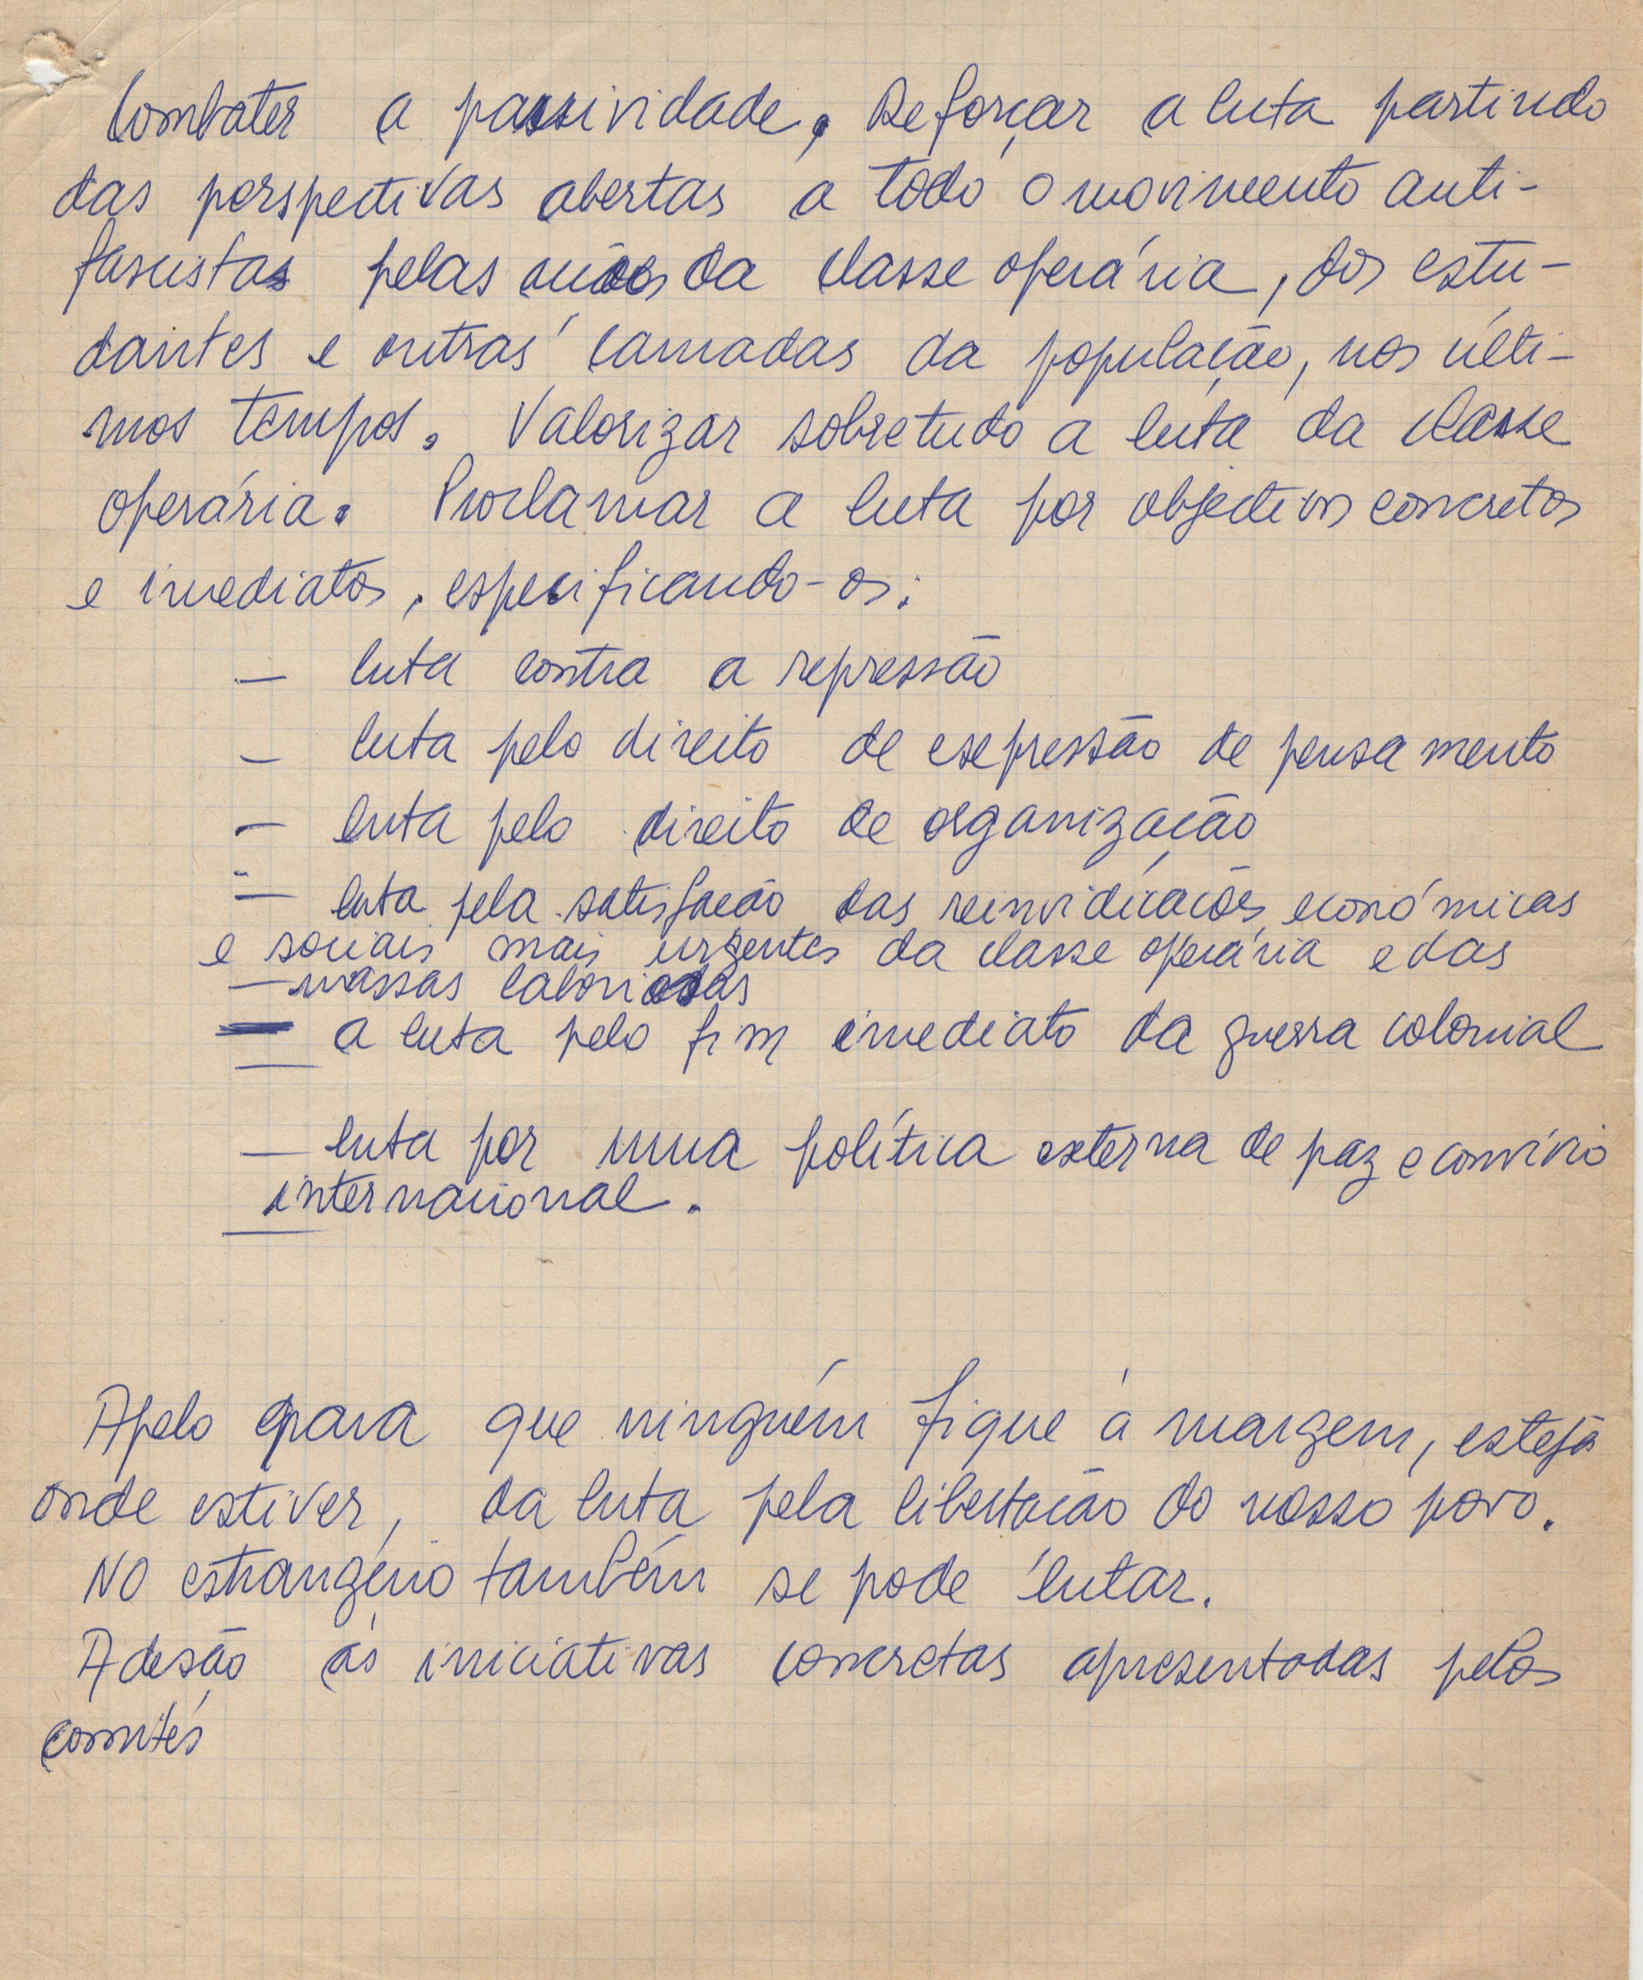 Combater a passividade. Reforçar a luta partindo
das perspectivas abertas a todo o movimento anti-
fascista pelas mãos da classe operária, dos estu-
dantes e outras camadas da população, nos últi-
mos tempos. Valorizar sobretudo a luta da classe
operária. Proclamar a luta por objectivos concretos
e imediatos, especificando-os:
— luta contra a repressão
— luta pelo direito de expressão de pensamento
— luta pelo direito de organização
— luta pela satisfação das reinvidicações económicas
e sociais mais urgentes da classe operária e das
— massas laboriosas
— a luta pelo fim imediato da guerra colonial
— luta por uma política externa de paz e convívio
internacional.
Apelo para que ninguém fique à margem, esteja
onde estiver, da luta pela libertacão do nosso povo.
No estrangeiro também se pode lutar.
Adesão às iniciativas concretas apresentadas pelos
comités